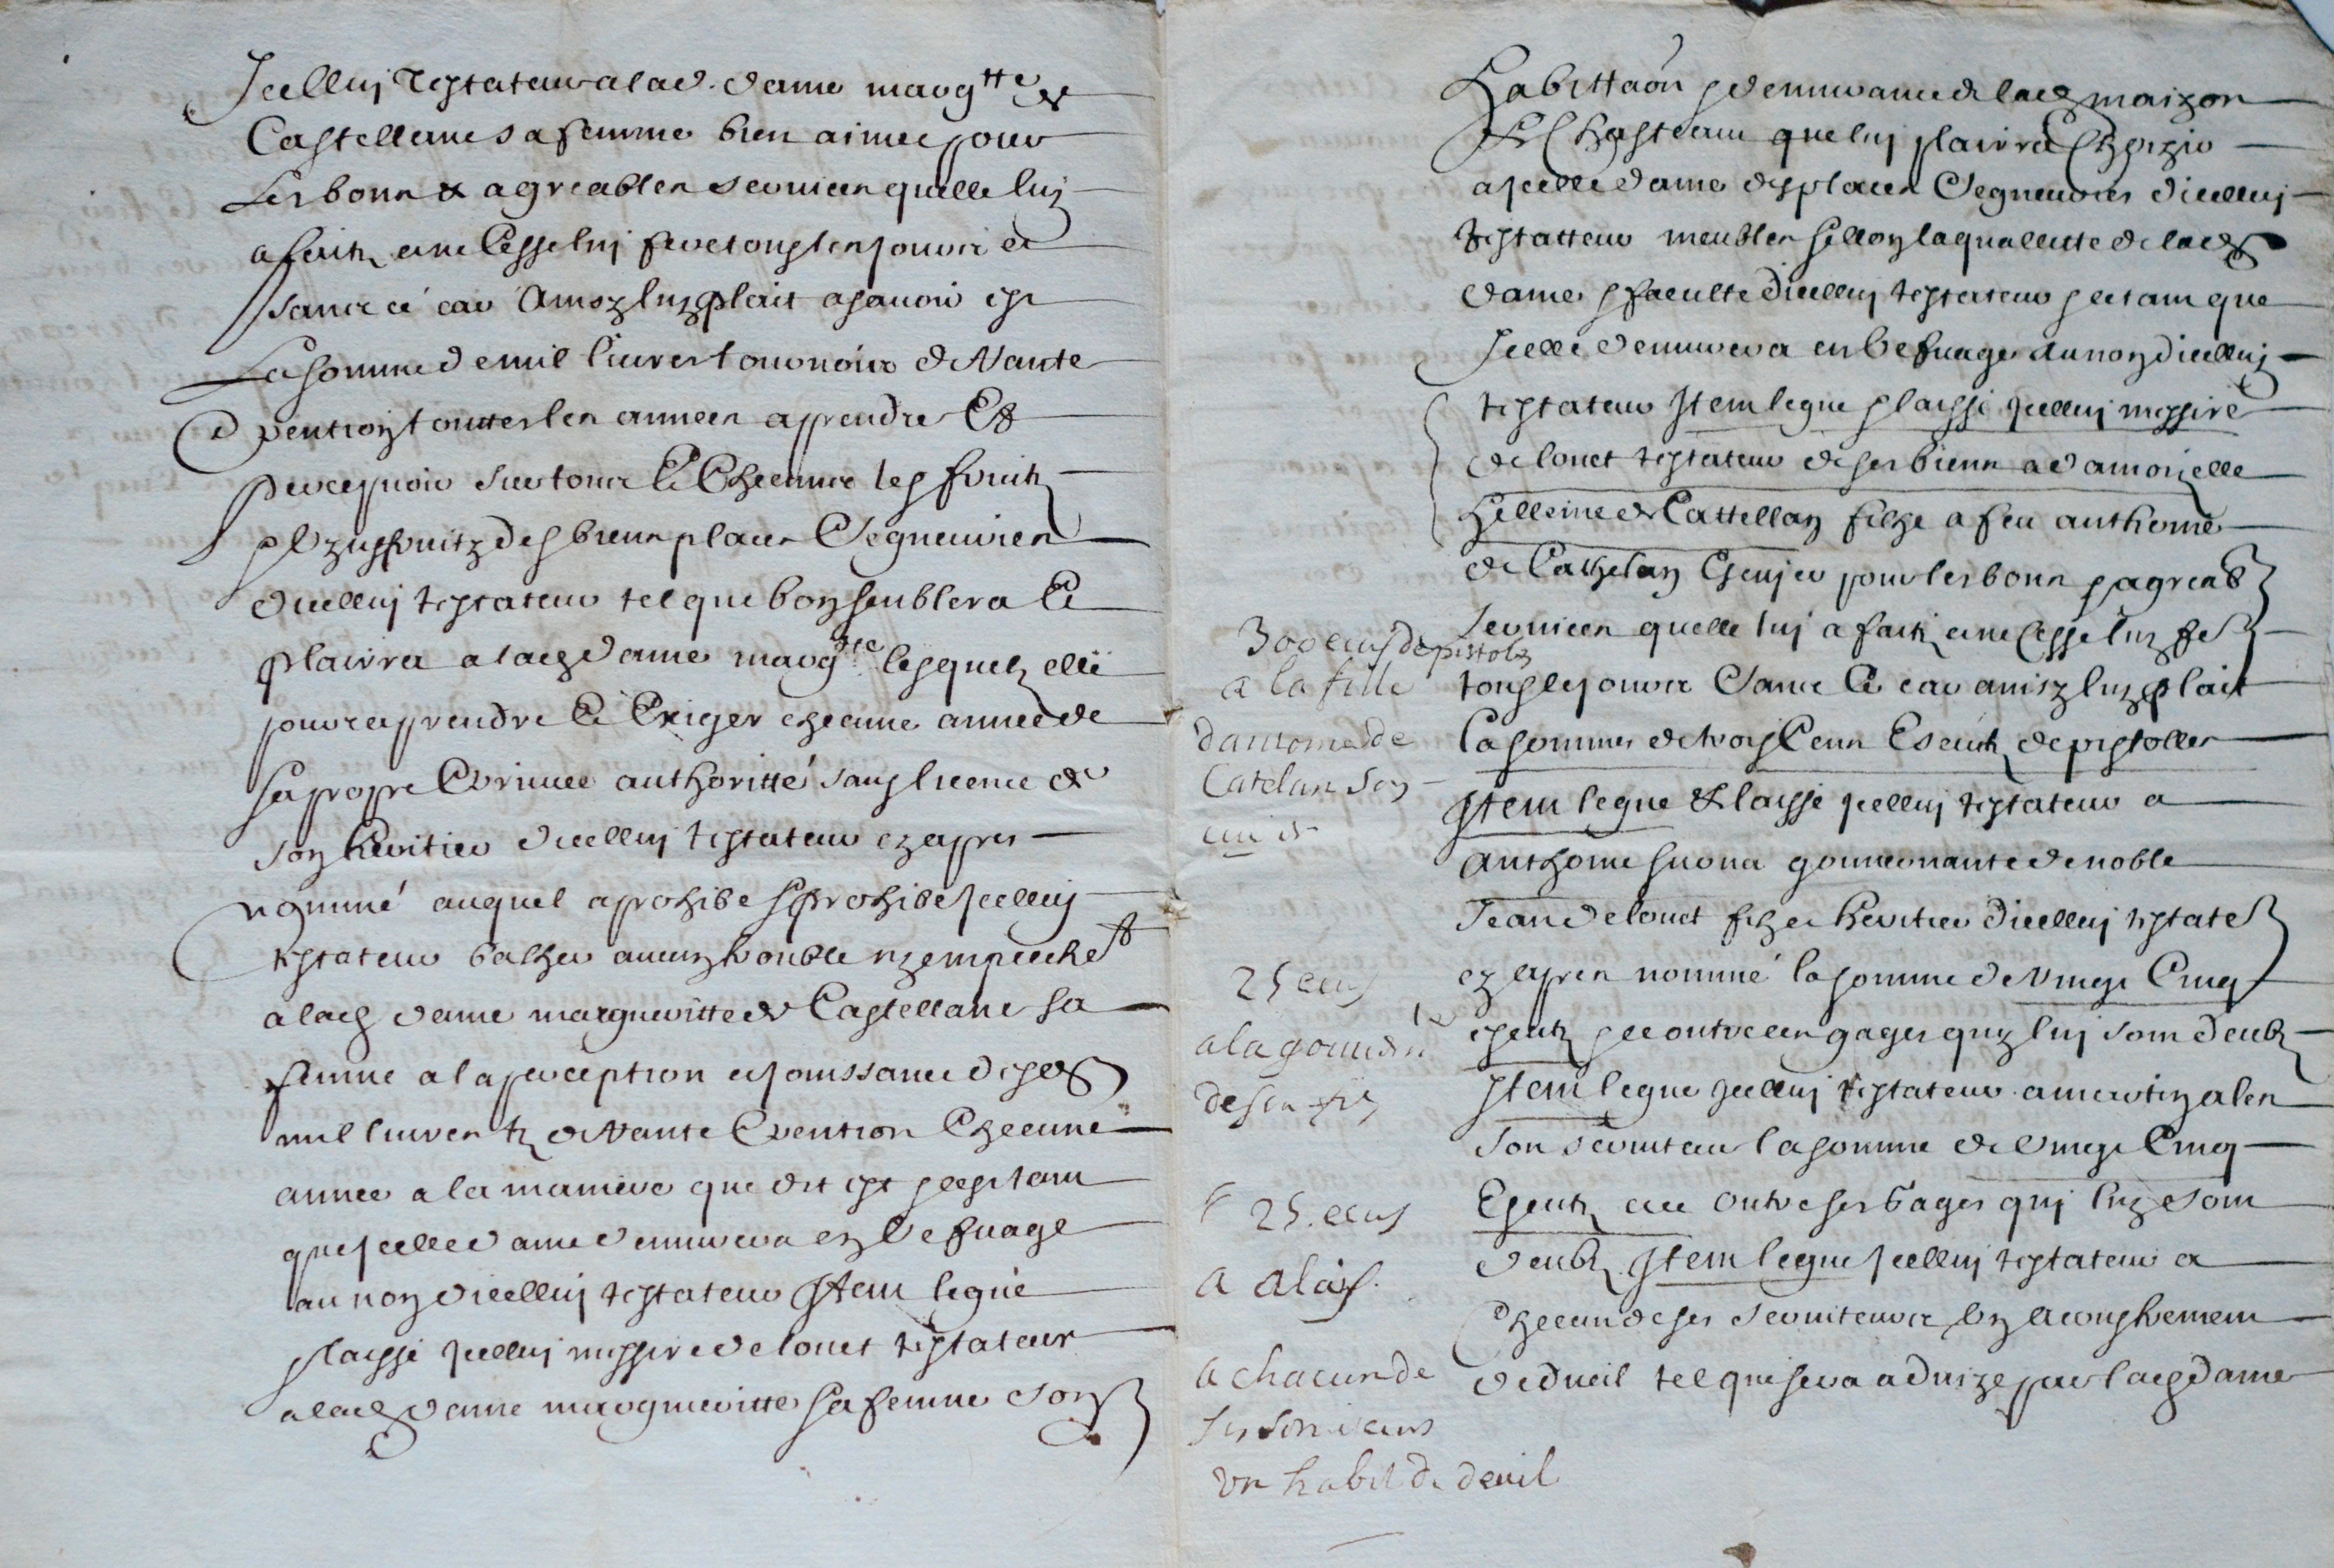 Icelluy testateur a lad. dame margtte de
Castellane sa femme bien aimee pour
les bons & agreables services quelle luy
a faitz et ne cesse luy fere tous les jours et
sance a ce car ainsy luy plait a scavoir est
la somme de mil livres tournoix de Rante
& pention touttes les annees a prendre Et
percepvoir sur tous Et chacuns les fruitz
& uzufruitz des biens places & segneuries
dicelluy testateur tel que bon semblera Et
plairra a lad dame margte lesquelz elle
pourra prendre Et Exiger chacune annee de
sa propre & privee authoritté sans licence de
son heritier dicelluy testateur cy apres
nommé auquel a prohibe & prohibe icelluy
testateur balher aucun trouble ny empeche
a lad dame margueritte de Castellane sa
femme a la perception et jouissance desd
mil livres tz de Rante & pention Chacune
annee a la maniere que dit est & ce tant
que icelle dame demurera en vefuage
au non dicelluy testateur Item legue
& laisse icelluy messire de louet testateur
a lad dame margueritte sa femme son
habittaon & demurance de lad maizon
et Chasteau que luy plairra Choizir
a icelle dame des places & segneuries dicelluy
testatteur meubles sellon la quallitte de lad
dame & faculte dicelluy testateur & ce tant que
Icelle demurera en vefuage au non dicelluy
testateur Item legue & laisse icelluy messire
de louet testateur de ses biens a damoizelle
Helleine de Cattellan filhe a feu anthoine
de Cathelan Escuyer pour les bons & agreab
services quelle luy a faitz et ne cesse luy fe
tous les jours & sance Et car ainsy luy plait
la somme de trois Cens Escutz de pistolles
Item legue & laisse icelluy testateur a
Anthoine suona gouvernante de noble
Jean de louet filz et heritier dicelluy testate
cy apres nommé la somme de vingt Cinq
escutz & ce outre les gages quy luy sont deubz
Item legue icelluy testateur a mertin ales
son serviteur la somme de vingt Cinq
Escutz et ce outre ses gages quy luy sont
deubz Item legue icelluy testateur a
Chacun de ses serviteurs un acoustrement
de dueil tel que sera advize par lad dame
300 ecus de pistoles
a la fille
dantoine de
Catelan son
25 ecus
a la gouvern te
de son fils
25. ecus
a alais.
a chacun de
ses serviteurs
un habit de deuil